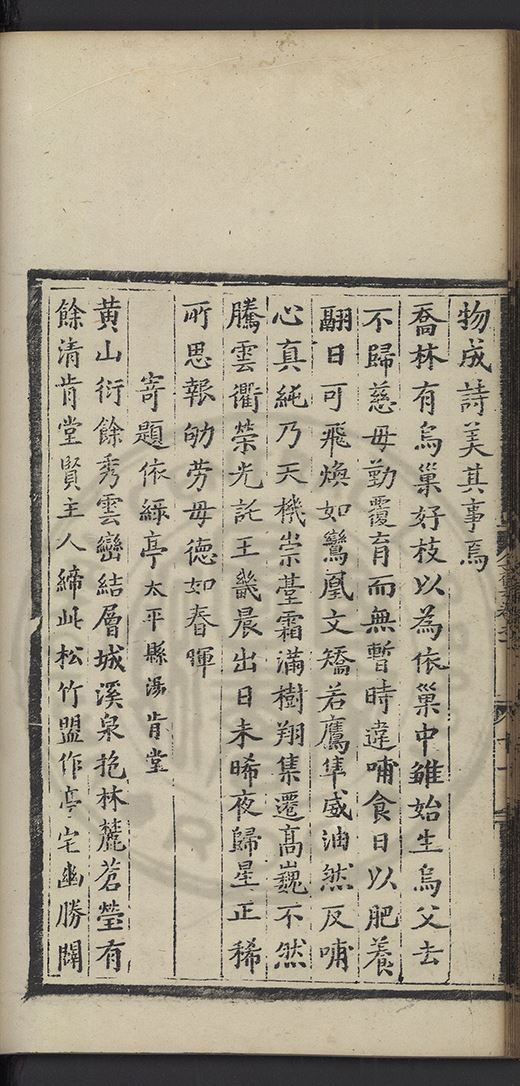 物成詩美其事焉
喬林有烏巢好枝以為依巢中雛始生烏父去
不歸慈母勤覆育而無暫時違哺食日以肥養
翮日可飛煥如鸞凰文矯若鷹隼威油然反哺
心真純乃天機崇臺霜滿樹翔集遷高巍不然
騰雲衢榮光託王畿晨出日未晞夜歸星正稀
所思報劬劳母德如春暉
寄題依綠亭太平縣湯肯堂
黄山衍餘秀雲巒結層城溪泉抱林麓蒼瑩有
餘清肯堂賢主人締此松竹盟作亭宅幽勝闢